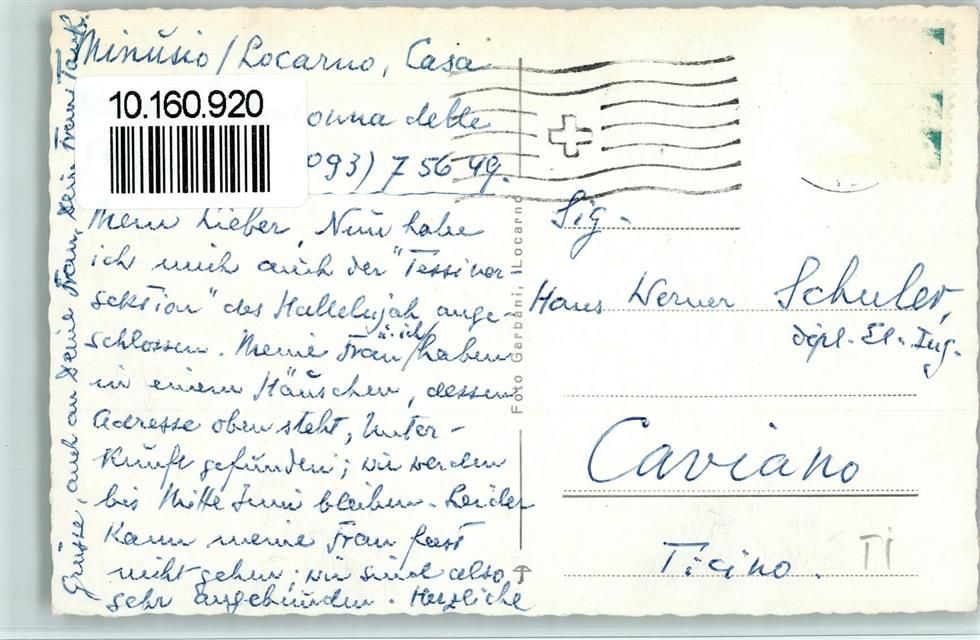 Minusio/Locarno, Casa
10.160.920
onna delle
093) 7 56 49.
Mein Lieber, Nun habe
ich mich auch der "Tessiner
sektion" des Hallelujah ange-
schlossen. Meine Frau u. ich haben
in einem Häuschen, dessen
Adresse oben steht, Unter-
kunft gefunden; wir werden
bis Mitte Juni bleiben. Leider
kann meine Frau fast
nicht gehen; wir sind also
sehr angebunden. Herzliche
Grüsse, auch an Deine Frau, Dein Franz Tank.
Foto Garbani, Locarno
Sig.
Hans Werner Schuler,
dipl. El. Ing.
Caviano
Ticino.
TI